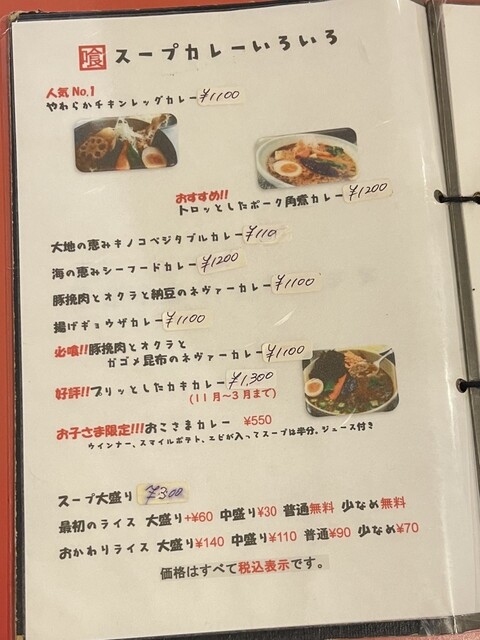 喰 スープカレーいろいろ
人気No.1
やわらかチキンレッグカレー ¥1100
おすすめ!!
トロッとしたポーク角煮カレー ¥1200
大地の恵みキノコベジタブルカレー
海の恵みシーフードカレー ¥1200
豚挽肉とオクラと納豆のネヴァーカレー ¥1100
揚げギョウザカレー ¥1100
必喰!!豚挽肉とオクラと
ガゴメ昆布のネヴァーカレー ¥1100
好評!!プリッとしたカキカレー ¥1,300
(11月〜3月まで)
お子さま限定!!!おこさまカレー ¥550
ウインナー、スマイルポテト、エビが入ってスープは半分。ジュース付き
スープ大盛り ¥300
最初のライス 大盛り+¥60 中盛り¥30 普通無料 少なめ無料
おかわりライス 大盛り¥140 中盛り¥110 普通¥90 少なめ¥70
価格はすべて税込表示です。